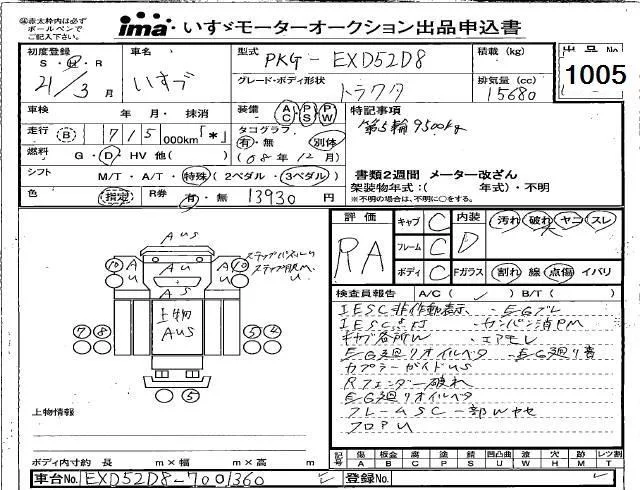 ※赤太枠内は必ず
ボールペンで
ご記入下さい。
ima いすゞモーターオークション出品申込書
初度登録 車名 型式 PKG-EXD52D8 積載(kg) 出品No.
S・H・R いすゞ グレード・ボディ形状 排気量(cc) 1005
21/3月 トラクタ 15680
車検 年 月・抹消 装備 AC PS PW 特記事項
走行 B 715 000km「*」 タコグラフ 第5輪9500kg
有・無 別体
燃料 G・D・HV 他( ) (08年12月)
シフト M/T・A/T・特殊(2ペダル・3ペダル) 書類2週間 メーター改ざん
架装物年式:( 年式)・不明
色 指定 R券 有・無 13930円 ※不明の場合は、不明に○をする。
評価 キャブ C 内装 汚れ 破れ ヤニ スレ
RA フレーム C D
ボディ C Fガラス 割れ 線 点傷 イバリ
検査員報告 A/C( ✓ ) B/T( )
IESC非作動表示・EGブレ
IESC点灯
キャブ各所W・エアモレ
EG廻りオイルベタ・EG廻り
カプラーガイドUS
Rフェンダー破れ
EG廻りオイルベタ
フレームSC一部Wヤセ
フロアU
AUS
AU
AS
上物
AUS
10
10
7 8
5
5
上物情報
記号 傷 板金 腐 塗 錆 凹凸曲 波 穴 跡 レツ割
A B C P S U W H M T
ボディ内寸約 長 m×幅 m×高 m
車台No. EXD52D8-7001360 登録No.